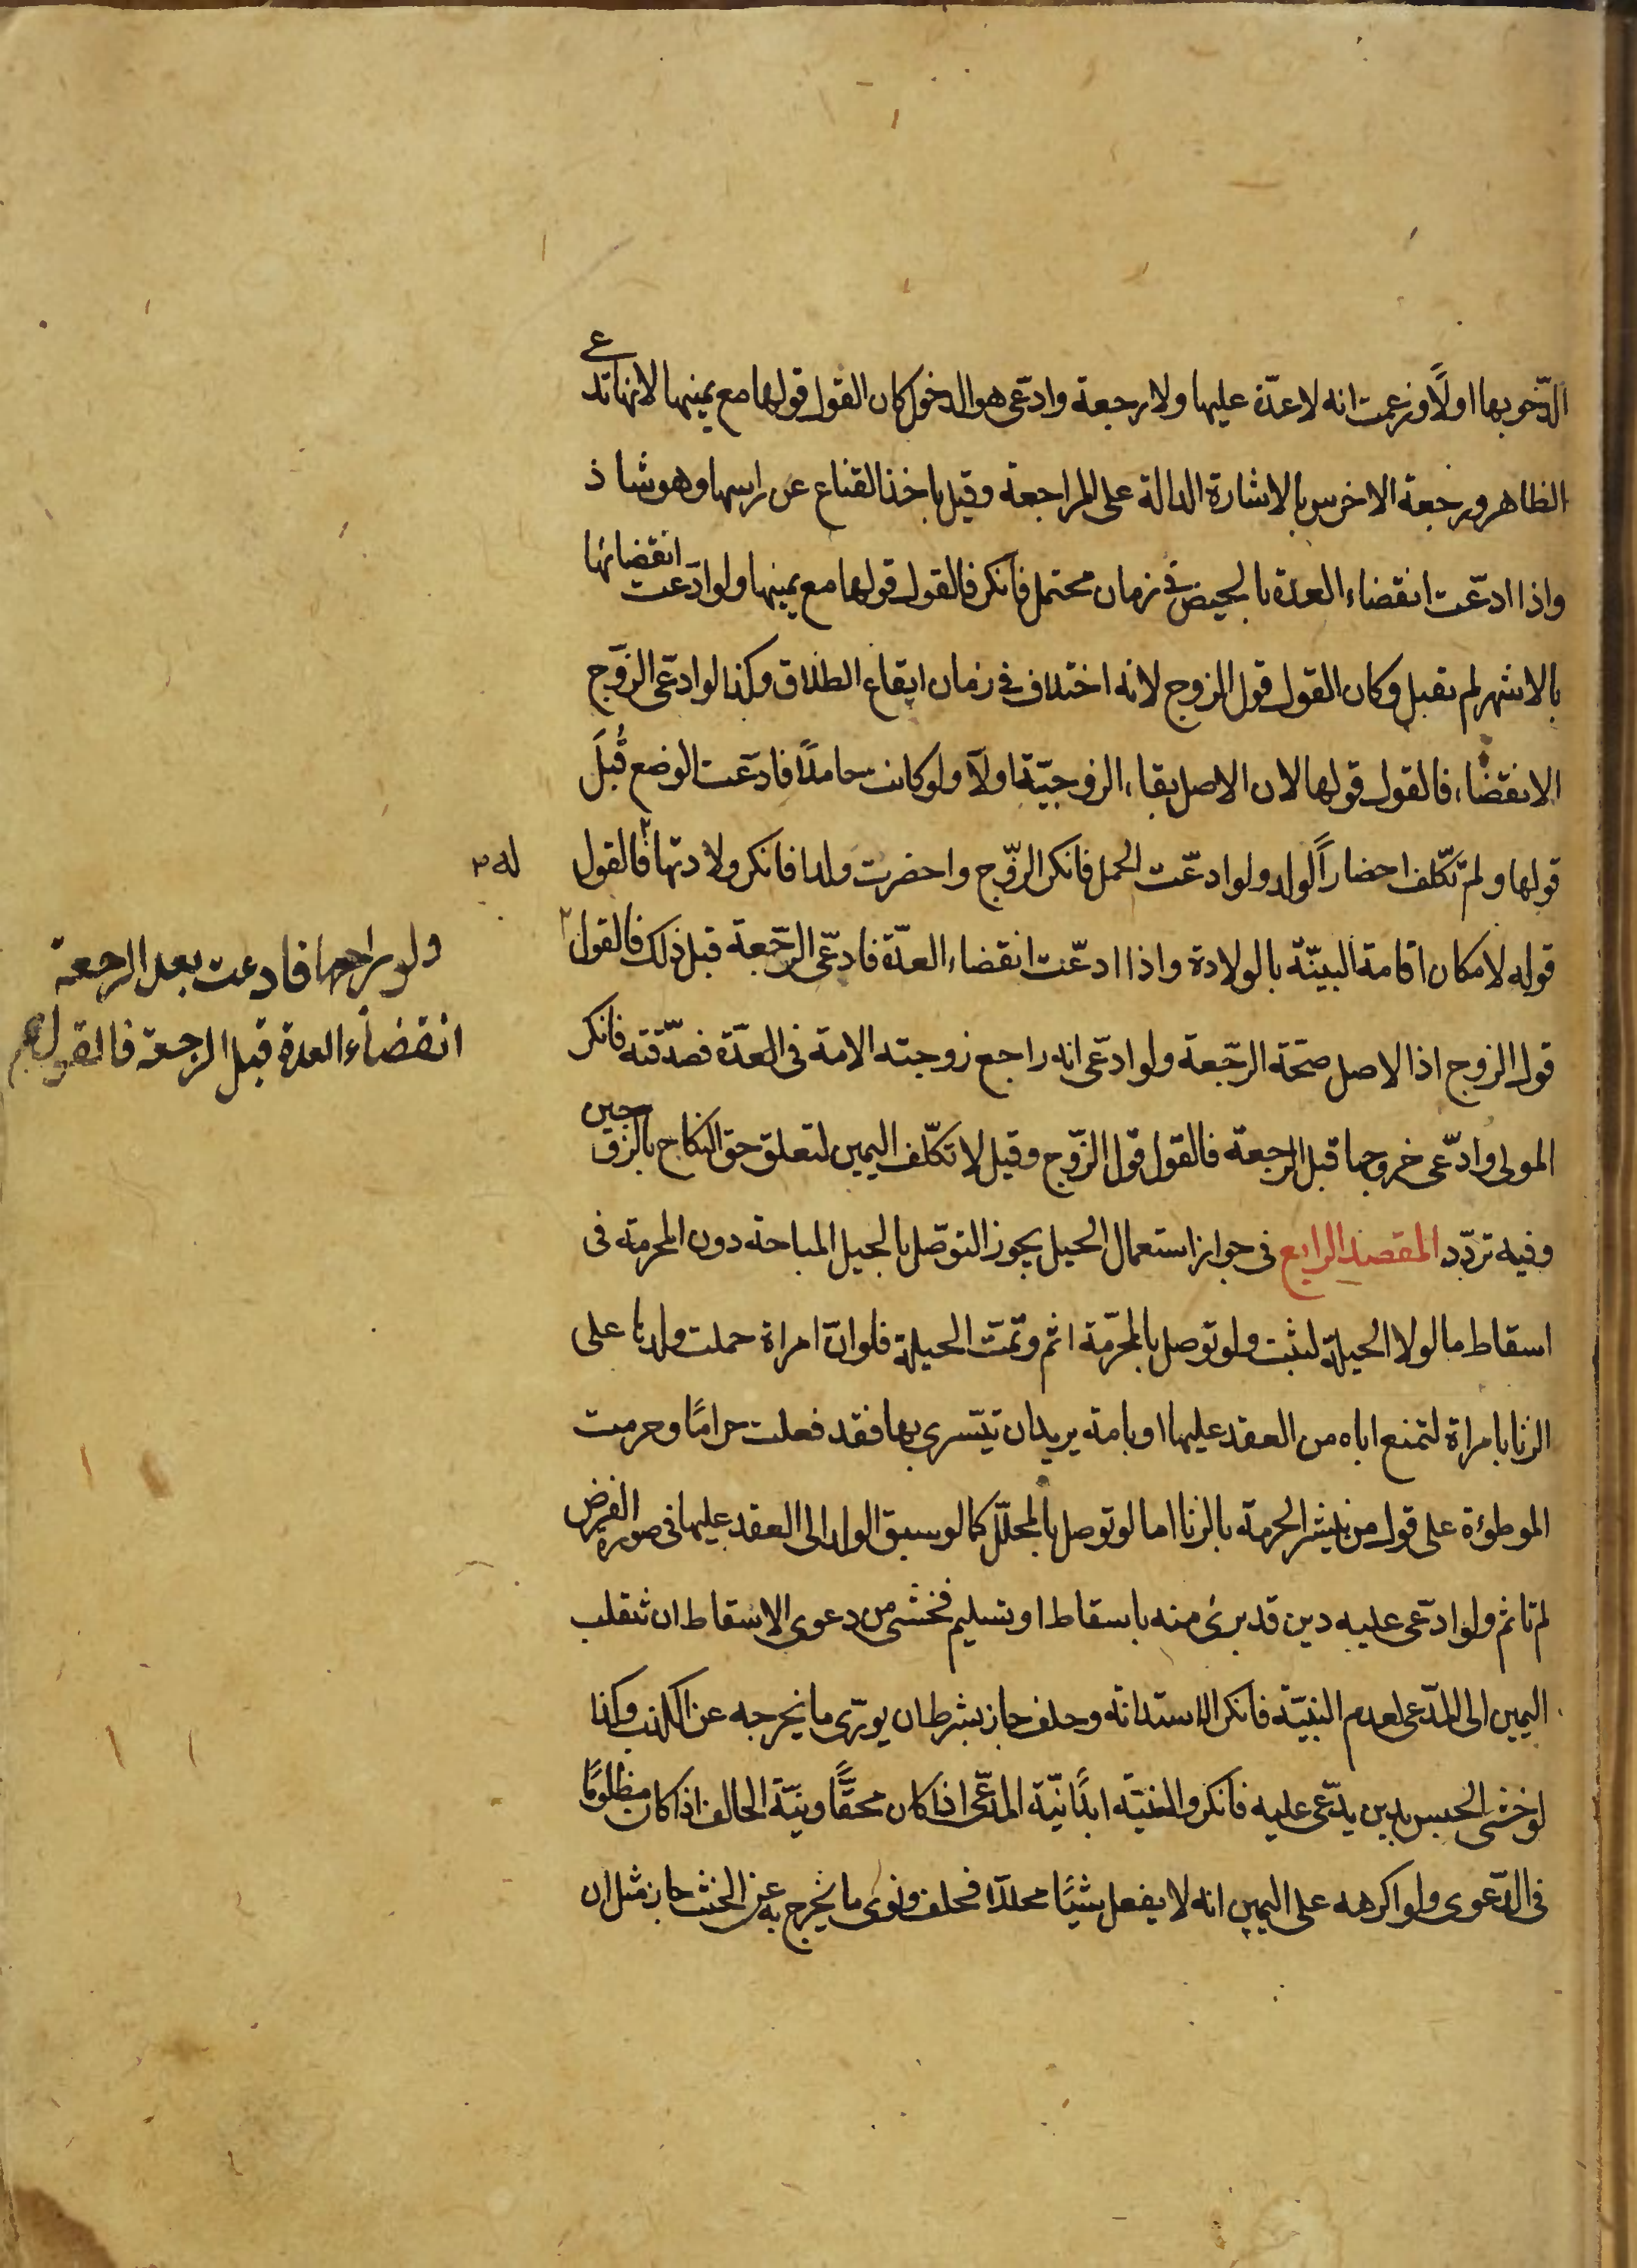 الدّخو بها اولًا وزعمت انه لا عدّة عليها ولا رجعة وادّعى هو الدخول كان القول قولها مع يمينها لانها تدعي
الظاهر ورجعة الاخرس بالاشارة الدالة على المراجعة وقيل باخذ القناع عن راسها وهو شاذ
واذا ادّعت انقضاء العدة بالحيض في زمان محتمل فانكر فالقول قولها مع يمينها ولو ادّعت انقضائها
بالاشهر لم تقبل وكان القول قول الزوج لانه اختلاف في زمان ايقاع الطلاق وكذا لو ادعى الزّوج
الانقضاء فالقول قولها لان الاصل بقاء الزوجيّة اولًا ولو كانت حاملًا فادّعت الوضع قُبلَ
قولها ولم تكلّف احضار الولد ولو ادعّت الحمل فانكر الزّوج واحضرت ولدا فانكر ولادتها فالقول
له
قوله لامكان اقامة البينّة بالولادة واذا ادعّت انقضاء العدّة فادعّى الرجّعة قبل ذلك فالقول
ولو راجعها فادعت بعد الرجعة
انقضاء العدة قبل الرجعة فالقول
قول الزوج اذ الاصل صحّة الرجّعة ولو ادعّى انه راجع زوجته الامة فى العدّة فصدّقته فانكر
المولى وادّعى خروجها قبل الرجعة فالقول قول الزّوج وقيل لا تكلّف اليمين لتعلق حق النكاح بالزوجين
وفيه تردّد المقصد الرابع فى جواز استعمال الحيل يجوز التوصّل بالحيل المباحة دون المحرمة فى
اسقاط ما لولا الحيلة لثبت ولو توصل بالمحرّمة اثم وتمّت الحيلة فلو انّ امراة حملت ولدها على
الزنا بامراة لتمنع اباه من العقد عليها او بامة يريد ان يتسرى بها فقد فعلت حرامًا وحرمت
الموطوءة على قول من ينشر الحرمة بالزنا اما لو توصل بالمحلّل كما لو سبق الولد الى العقد عليها فى صورة الفرض
لم تاثم ولو ادعّى عليه دين قد برئ منه باسقاط او تسليم فخشى من دعوى الاسقاط ان تنقلب
اليمين الى المدّعى لعدم البنيّة فانكر الاستدانة وحلف جاز بشرط ان يورّى ما يخرجه عن الكذب وكذا
لو خشى الحبس بدين يدّعى عليه فانكر والنيّة ابدًا نيّة المدّعى اذا كان محقًّا ونيّة الحالف اذا كان مظلومًا
فى الدّعوى ولو اكرهه على اليمين انه لا يفعل شيئًا محللًا فحلف ونوى ما يخرج به عن الحنث جاز مثل ان